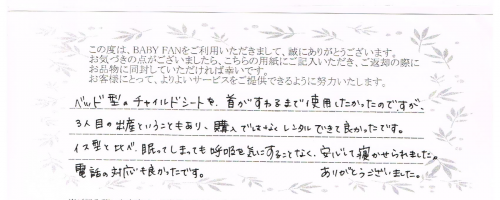 この度は、BABY FANをご利用いただきまして、誠にありがとうございます。
お気づきの点がございましたら、こちらの用紙にご記入いただき、ご返却の際に
お品物に同封していただければ幸いです。
お客様にとって、よりよいサービスをご提供できるように努力いたします。
ベッド型のチャイルドシートを、首がすわるまで使用したかったのですが、
3人目の出産ということもあり、購入ではなくレンタルできて良かったです。
イス型と比べ、眠ってしまっても呼吸を気にすることなく、安心して寝かせられました。
電話の対応も良かったです。 ありがとうございました。